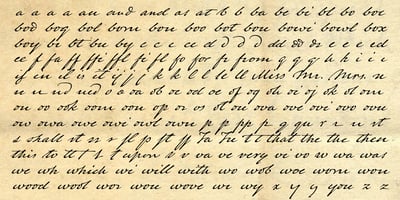 a a a a au and and as at b b ba be bi bl bo boc
bod bog bol born bou boo bot bou bowi bowl box
boy br bt bu by c c c c d d d d dd do e e e e ed
ee f fa ff ffi ffl fi fl fo for fr from g g g h h i i
if in il is it ij j k k k l l le ll Miss Mr. Mrs. n
n u nd ud o o oa ob oc od oe of og oh oi oj ok ol om
on oo ook oom oon op or os ot ou ova ove ovi ovo ovu
ow owa owe owi owl own p p pp p q qu r r u st
s shall st ss s fl p st ff Ta Tu t t that the the then
this to tt t t upon v v va ve very vi vo w wa was
we wh which wi will with wo wob woe worn wou
wood wool wor wou wove wr wy x y y you z z